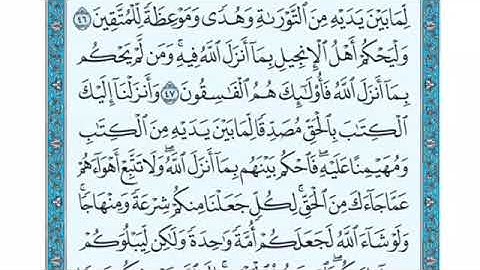 لِّمَا بَيْنَ يَدَيْهِ مِنَ ٱلتَّوْرَىٰةِ وَهُدًى وَمَوْعِظَةً لِّلْمُتَّقِينَ ٤٦
وَلْيَحْكُمْ أَهْلُ ٱلْإِنجِيلِ بِمَآ أَنزَلَ ٱللَّهُ فِيهِ ۚ وَمَن لَّمْ يَحْكُم
بِمَآ أَنزَلَ ٱللَّهُ فَأُو۟لَـٰٓئِكَ هُمُ ٱلْفَـٰسِقُونَ ٤٧ وَأَنزَلْنَآ إِلَيْكَ
ٱلْكِتَـٰبَ بِٱلْحَقِّ مُصَدِّقًا لِّمَا بَيْنَ يَدَيْهِ مِنَ ٱلْكِتَـٰبِ
وَمُهَيْمِنًا عَلَيْهِ ۖ فَٱحْكُم بَيْنَهُم بِمَآ أَنزَلَ ٱللَّهُ ۖ وَلَا تَتَّبِعْ أَهْوَآءَهُمْ
عَمَّا جَآءَكَ مِنَ ٱلْحَقِّ ۚ لِكُلٍّ جَعَلْنَا مِنكُمْ شِرْعَةً وَمِنْهَاجًا ۚ
وَلَوْ شَآءَ ٱللَّهُ لَجَعَلَكُمْ أُمَّةً وَٰحِدَةً وَلَـٰكِن لِّيَبْلُوَكُمْ